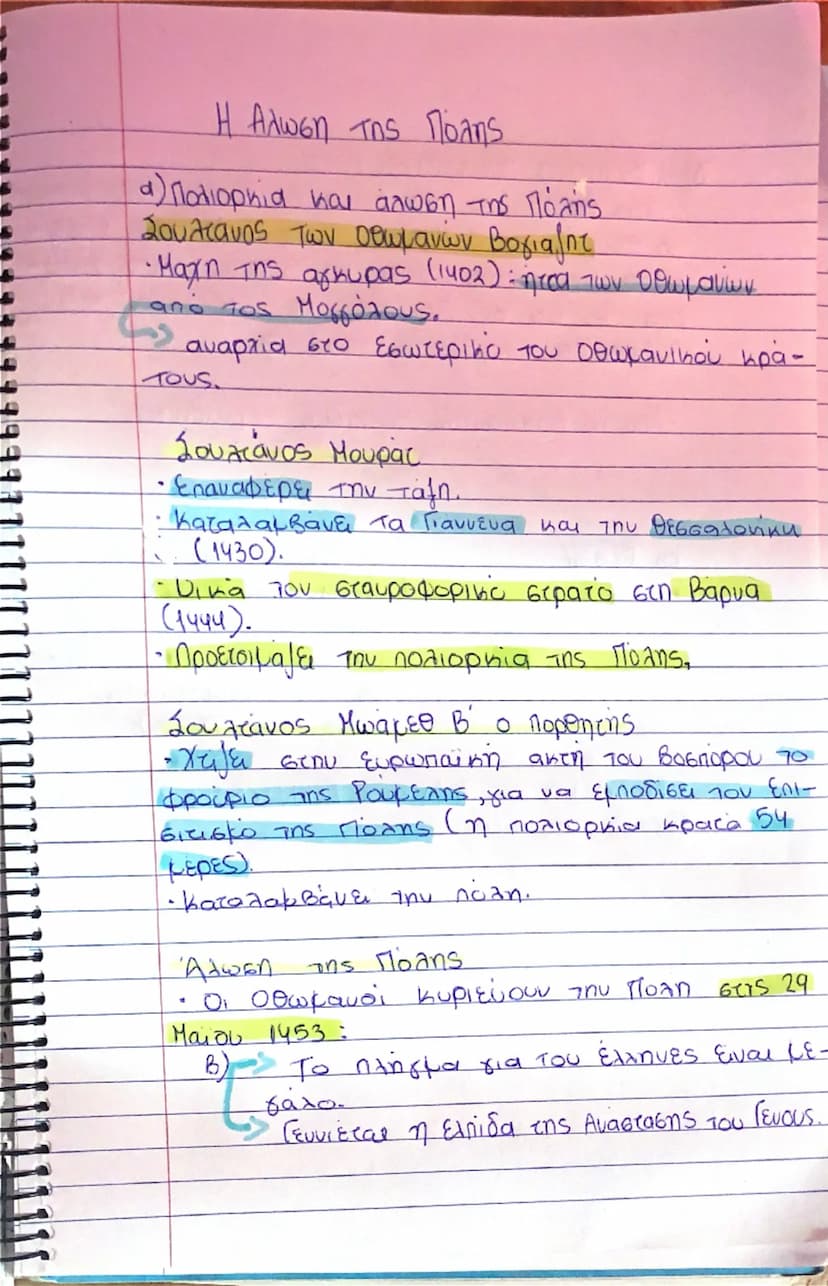 Η Αλωση της Πόλης
α) Πολιορκία και άλωση της Πόλης
Σουλτάνος των Οθωμανών Βαγιαζήτ
· Μαχη της αγκυρας (1402): ήττα των Οθωμανών
από τος Μογγόλους.
αναρχία στο εσωτερικό του Οθωμανικού κρά-
τους.
Σουλτάνος Μουράτ
· Επαναφέρει την τάξη.
· Καταλαμβάνει τα Γιαννενα και την Θεσσαλονίκη
(1430).
· Νικά τον σταυροφορικό στρατό στη Βάρνα
(1444).
· Προετοιμάζει την πολιορκία της Πόλης.
Σουλτάνος Μωάμεθ Β΄ ο πορθητής
· Χτίζει στην Ευρωπαϊκή ακτή του Βοσπόρου το
φρούριο της Ρούμελης, για να εμποδίσει τον Επι-
σιτισμό της Πόλης (η πολιορκία κρατά 54
μέρες).
· Καταλαμβάνει την πόλη.
Άλωση της Πόλης
· Οι Οθωμανοί κυριεύουν την Πολη στις 29
Μαΐου 1453:
Β) Το πλήγμα για του έλληνες είναι με-
γάλο.
Γεννιέται η ελπίδα της Ανάστασης του Γένους.